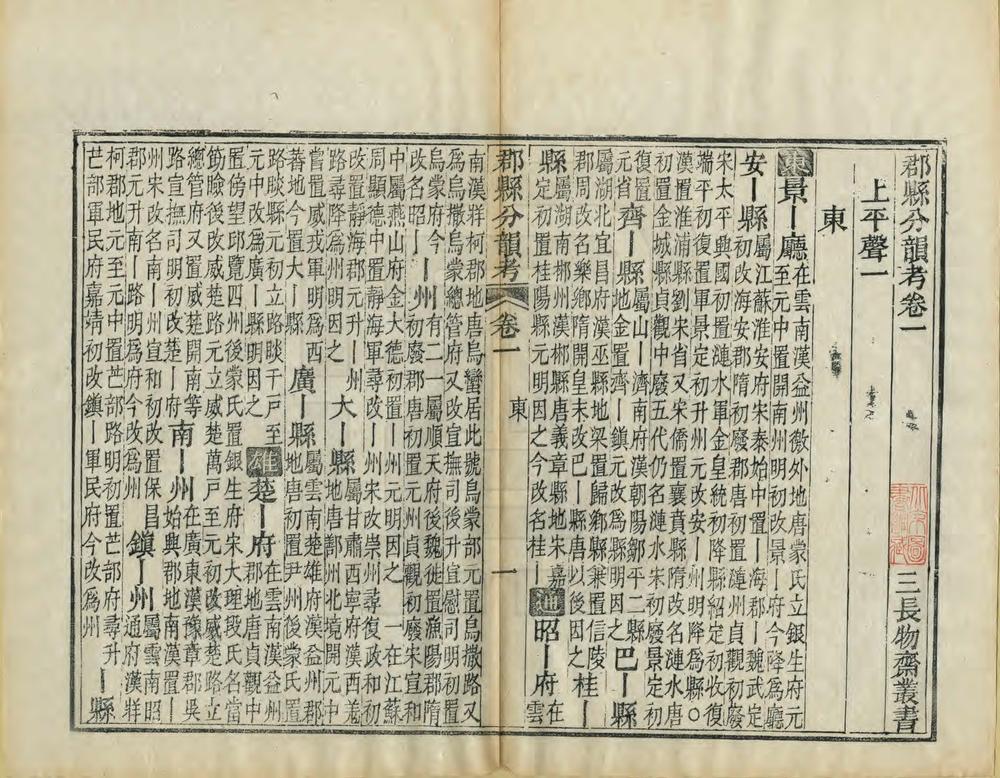 郡縣分韻考卷一
三長物齋叢書
上平聲一
東
東景丨廳
在雲南漢益州徼外地唐蒙氏立銀生府元
至元中置開南州明初改景丨府今降爲廳
安丨縣
屬江蘇淮安府宋泰始中置丨海郡丨魏武定
初改海安郡隋初廢郡唐初置漣州貞觀初廢
宋太平興國初置漣水軍金皇統初降縣紹定初收復
端平初復置軍景定初升州元改安丨州明降爲縣〇
漢置淮浦縣劉宋省又宋僑置襄賁縣隋改名漣水唐
初置金城縣貞觀中廢五代仍名漣水宋初廢景定初
復置
元省
齊丨縣
屬山丨濟南府漢朝陽鄒平二縣
地金置齊丨鎮元改爲縣明因之
巴丨縣
屬湖北宜昌府漢巫縣地梁置歸鄉縣兼置信陵
郡周改名樂鄉隋開皇末改巴丨縣唐以後因之
桂丨
縣
屬湖南郴州漢郴縣唐義章縣地宋嘉
定初置桂陽縣元明因之今改名桂丨
通昭丨府
在
雲
郡縣分韻考 卷一 東 一
南漢牂柯郡地唐烏蠻居此號烏蒙部元置烏撒路又
爲烏撒烏蒙總管府又改宣撫司後升宣慰司明初置
烏蒙府今
改名昭丨
丨州
有二一屬順天府後魏徙置漁陽郡隋
初廢郡唐初置元州貞觀初廢宋宣和
中屬燕山府金大德初置丨州元明因之一在江蘇
周顯德中置靜海軍尋改丨州宋改崇州尋復政和初
改置靜海郡元升丨州
路尋降爲州明因之
大丨縣
屬甘肅西寧府漢西羌
地唐鄯州地北境開元中
嘗置威戎軍明爲西
蕃地今置大丨縣
廣丨縣
屬雲南楚雄府漢益州郡
地唐初置尹州後蒙氏置
路賧縣元初立路賧千戶至
元中改爲廣丨縣明因之
雄楚丨府
在雲南漢益州
郡地唐貞觀中
置傍望邱覽四州後蒙氏置銀生府宋大理段氏名當
筯瞼後改威楚路元立威楚萬戶至元初改威楚路立
總管府又置威楚開南等
路宣撫司明初改楚丨府
南丨州
在廣東漢豫章郡吳
始興郡地南漢置丨
州宋改名南丨州宣和初改置保昌
郡元升南丨路明爲府今改爲州
鎮丨州
屬雲南昭
通府漢牂
柯郡地元至元中置芒部路明初置芒部府尋升
芒部軍民府嘉靖初改鎮丨軍民府今改爲州
丨縣